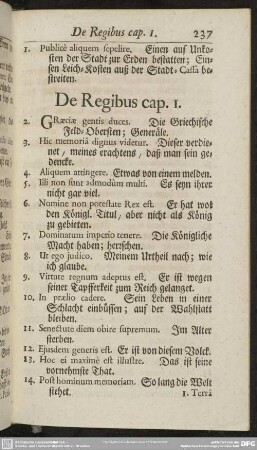 De Regibus cap. 1. 237
1. Publicè aliquem sepelire. Einen auf Unko-
sten der Stadt zur Erden bestatten; Ein-
sen Leich-Kosten auß der Stadt-Cassâ be-
streiten.
De Regibus cap. 1.
2. GRæciæ gentis duces. Die Griechische
Feld-Obersten; Generäle.
3. Hic memoriâ dignus videtur. Dieser verdie-
net, meines erachtens, daß man sein ge-
dencke.
4. Aliquem attingere. Etwas von einem melden.
5. Illi non sunt admodùm multi. Es seyn ihrer
nicht gar viel.
6. Nomine non potestate Rex est. Er hat wol
den Königl. Titul, aber nicht als König
zu gebieten.
7. Dominatum imperio tenere. Die Königliche
Macht haben; herrschen.
8. Ut ego judico. Meinem Urtheil nach; wie
ich glaube.
9. Virtute regnum adeptus est. Er ist wegen
seiner Tapfferkeit zum Reich gelanget.
10. In prælio cadere. Sein Leben in einer
Schlacht einbüssen; auf der Wahlstatt
bleiben.
11. Senectute diem obire supremum. Im Alter
sterben.
12. Ejusdem generis est. Er ist von diesem Volck.
13. Hoc ei maximè est illustre. Das ist seine
vornehmste That.
14. Post hominum memoriam. So lang die Welt
stehet. 1. Terrâ